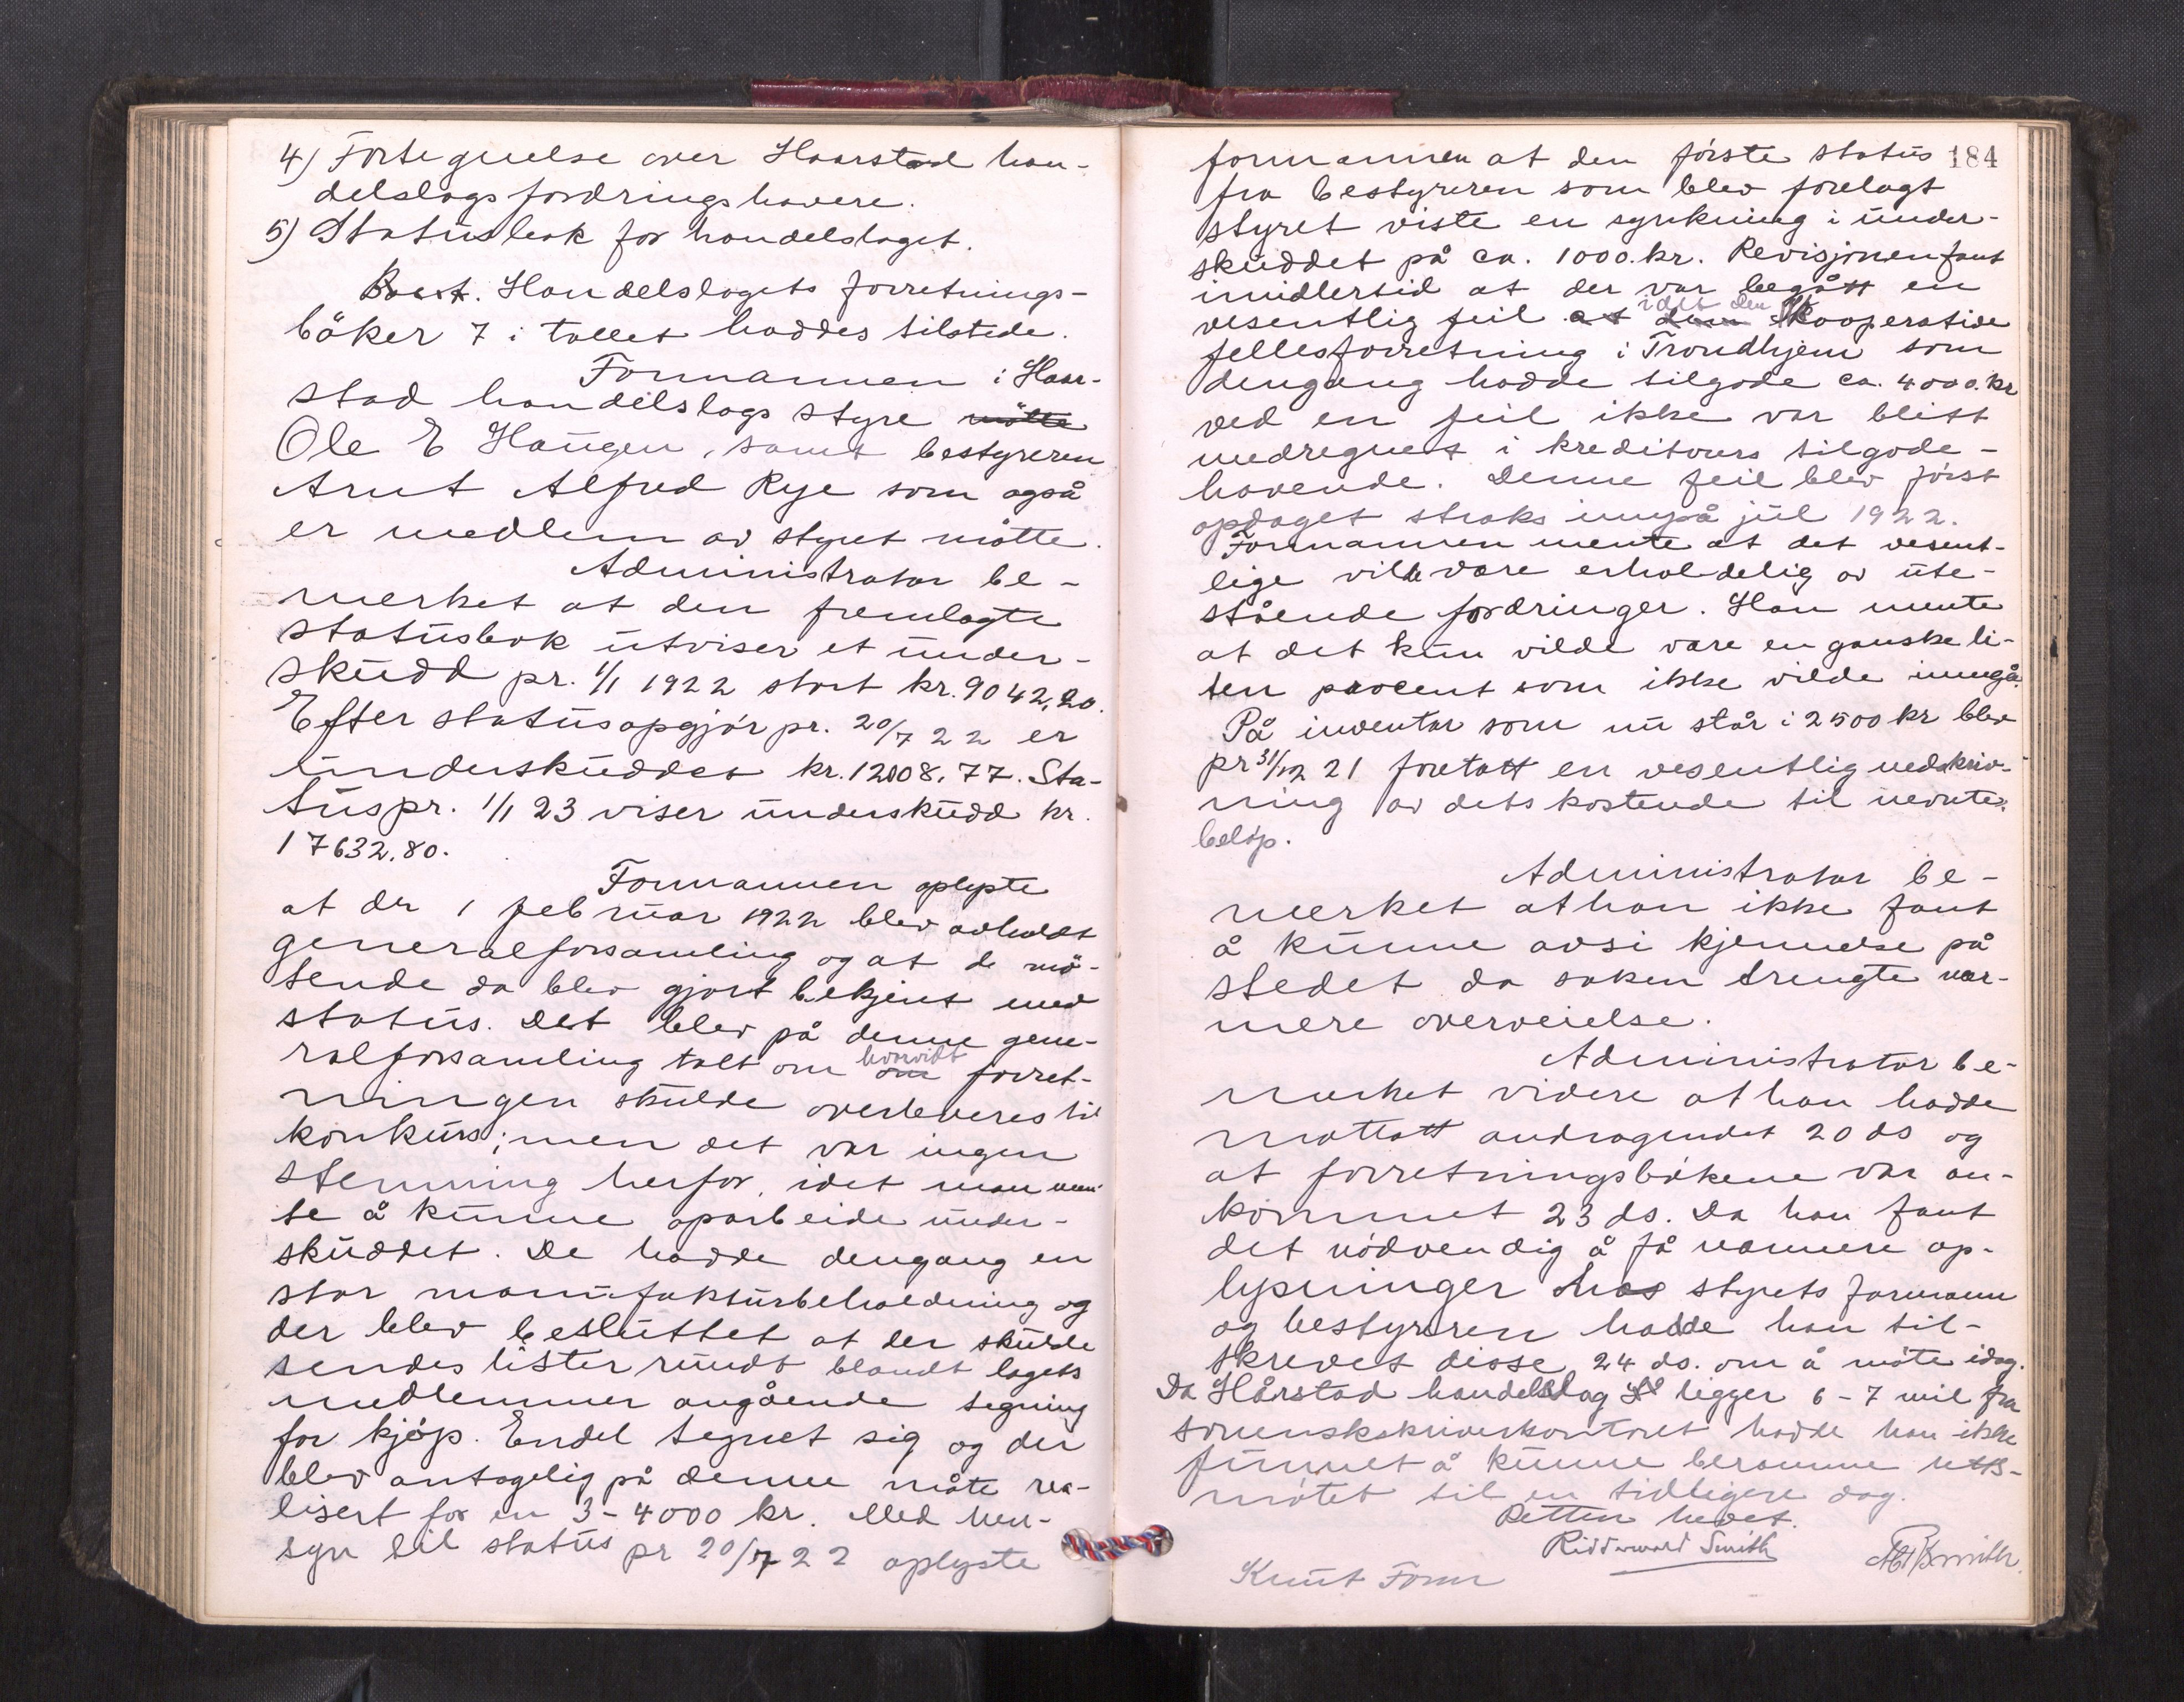 4) Fortegnelse over Haarstad han-
delslags fordringshavere.
5) Statusbok for handelslaget.
Handelslagets forretnings-
böker 7 i tallet haddes tilstede.
Formannen i Haar-
stad handelslags styre mötte
Ole E Haugen, samt bestyreren
Arnt Alfred Rye som også
er medlem av styret mötte.
Administrator be-
merket at den fremlagte
statusbok utviser et under-
skudd pr. 1/1 1922 stort kr. 9042,20.
Efter statusopgjör pr. 20/7 22 er
underskuddet kr. 12008.77. Sta-
tus pr. 1/1 23 viser underskudd kr.
17632.80.
Formannen oplyste
at der 1 februar 1922 blev avholdt
generalforsamling og at de mö-
tende da blev gjort bekjent med
status. Det blev på denne gene-
ralforsamling talt om om hvorvidt forret-
ningen skulde overleveres til
konkurs; men det var ingen
stemning herfor, idet man men-
te å kunne oparbeide under-
skuddet. De hadde dengang en
stor manufakturbeholdning og
der blev besluttet at der skulde
sendes lister rundt blandt lagets
medlemmer angående tegning
for kjöp. Endel tegnet sig og der
blev antagelig på denne måte rea-
lisert for en 3-4000 kr. Med hen-
syn til status pr 20/7 22 oplyste
184
formannen at den förste status
fra bestyreren som blev forelagt
styret viste en synkning i under-
skuddet på ca. 1000.kr. Revisjonen fant
imidlertid at der var begått en
vesentlig feil at dem idet den Kooperative
fellesforretning i Trondhjem som
dengang hadde tilgode ca. 4000.kr
ved en feil ikke var blitt
medregnet i kreditorers tilgode-
havende. Denne feil blev först
opdaget straks innpå jul 1922.
Formannen mente at det vesent-
lige vilde være erholdelig av ute-
stående fordringer. Han mente
at det kun vilde være en ganske li-
ten procent som ikke vilde inngå.
På inventar som nu står i 2500 kr blev
pr 31/12 21 foretatt en vesentlig nedskriv-
ning av dets kostende til nevnte
belöp.
Administrator be-
merket at han ikke fant
å kunne avsi kjennelse på
stedet da saken trengte nær-
mere overveielse.
Administrator be-
merket videre at han hadde
mottatt andragendet 20 ds og
at forretningsbökene var an-
kommet 23 ds. Da han fant
det nödvendig å få nærmere op-
lysninger hos styrets formann
og bestyreren hadde han til-
skrevet disse 24 ds. om å möte idag.
Da Hårstad handelslag ligger 6-7 mil fra
sorenskriverkontoret hadde han ikke
funnet å kunne beramme retts-
mötet til en tidligere dag.
Retten hevet.
Ridderwold Smith
Knut Foran